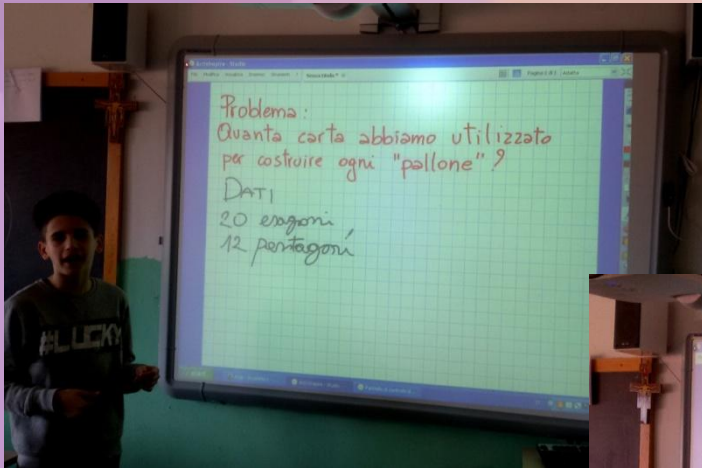 Problema:
Quanta carta abbiamo utilizzato
per costruire ogni "pallone"?
DATI
20 esagoni
12 pentagoni
#LUCKY